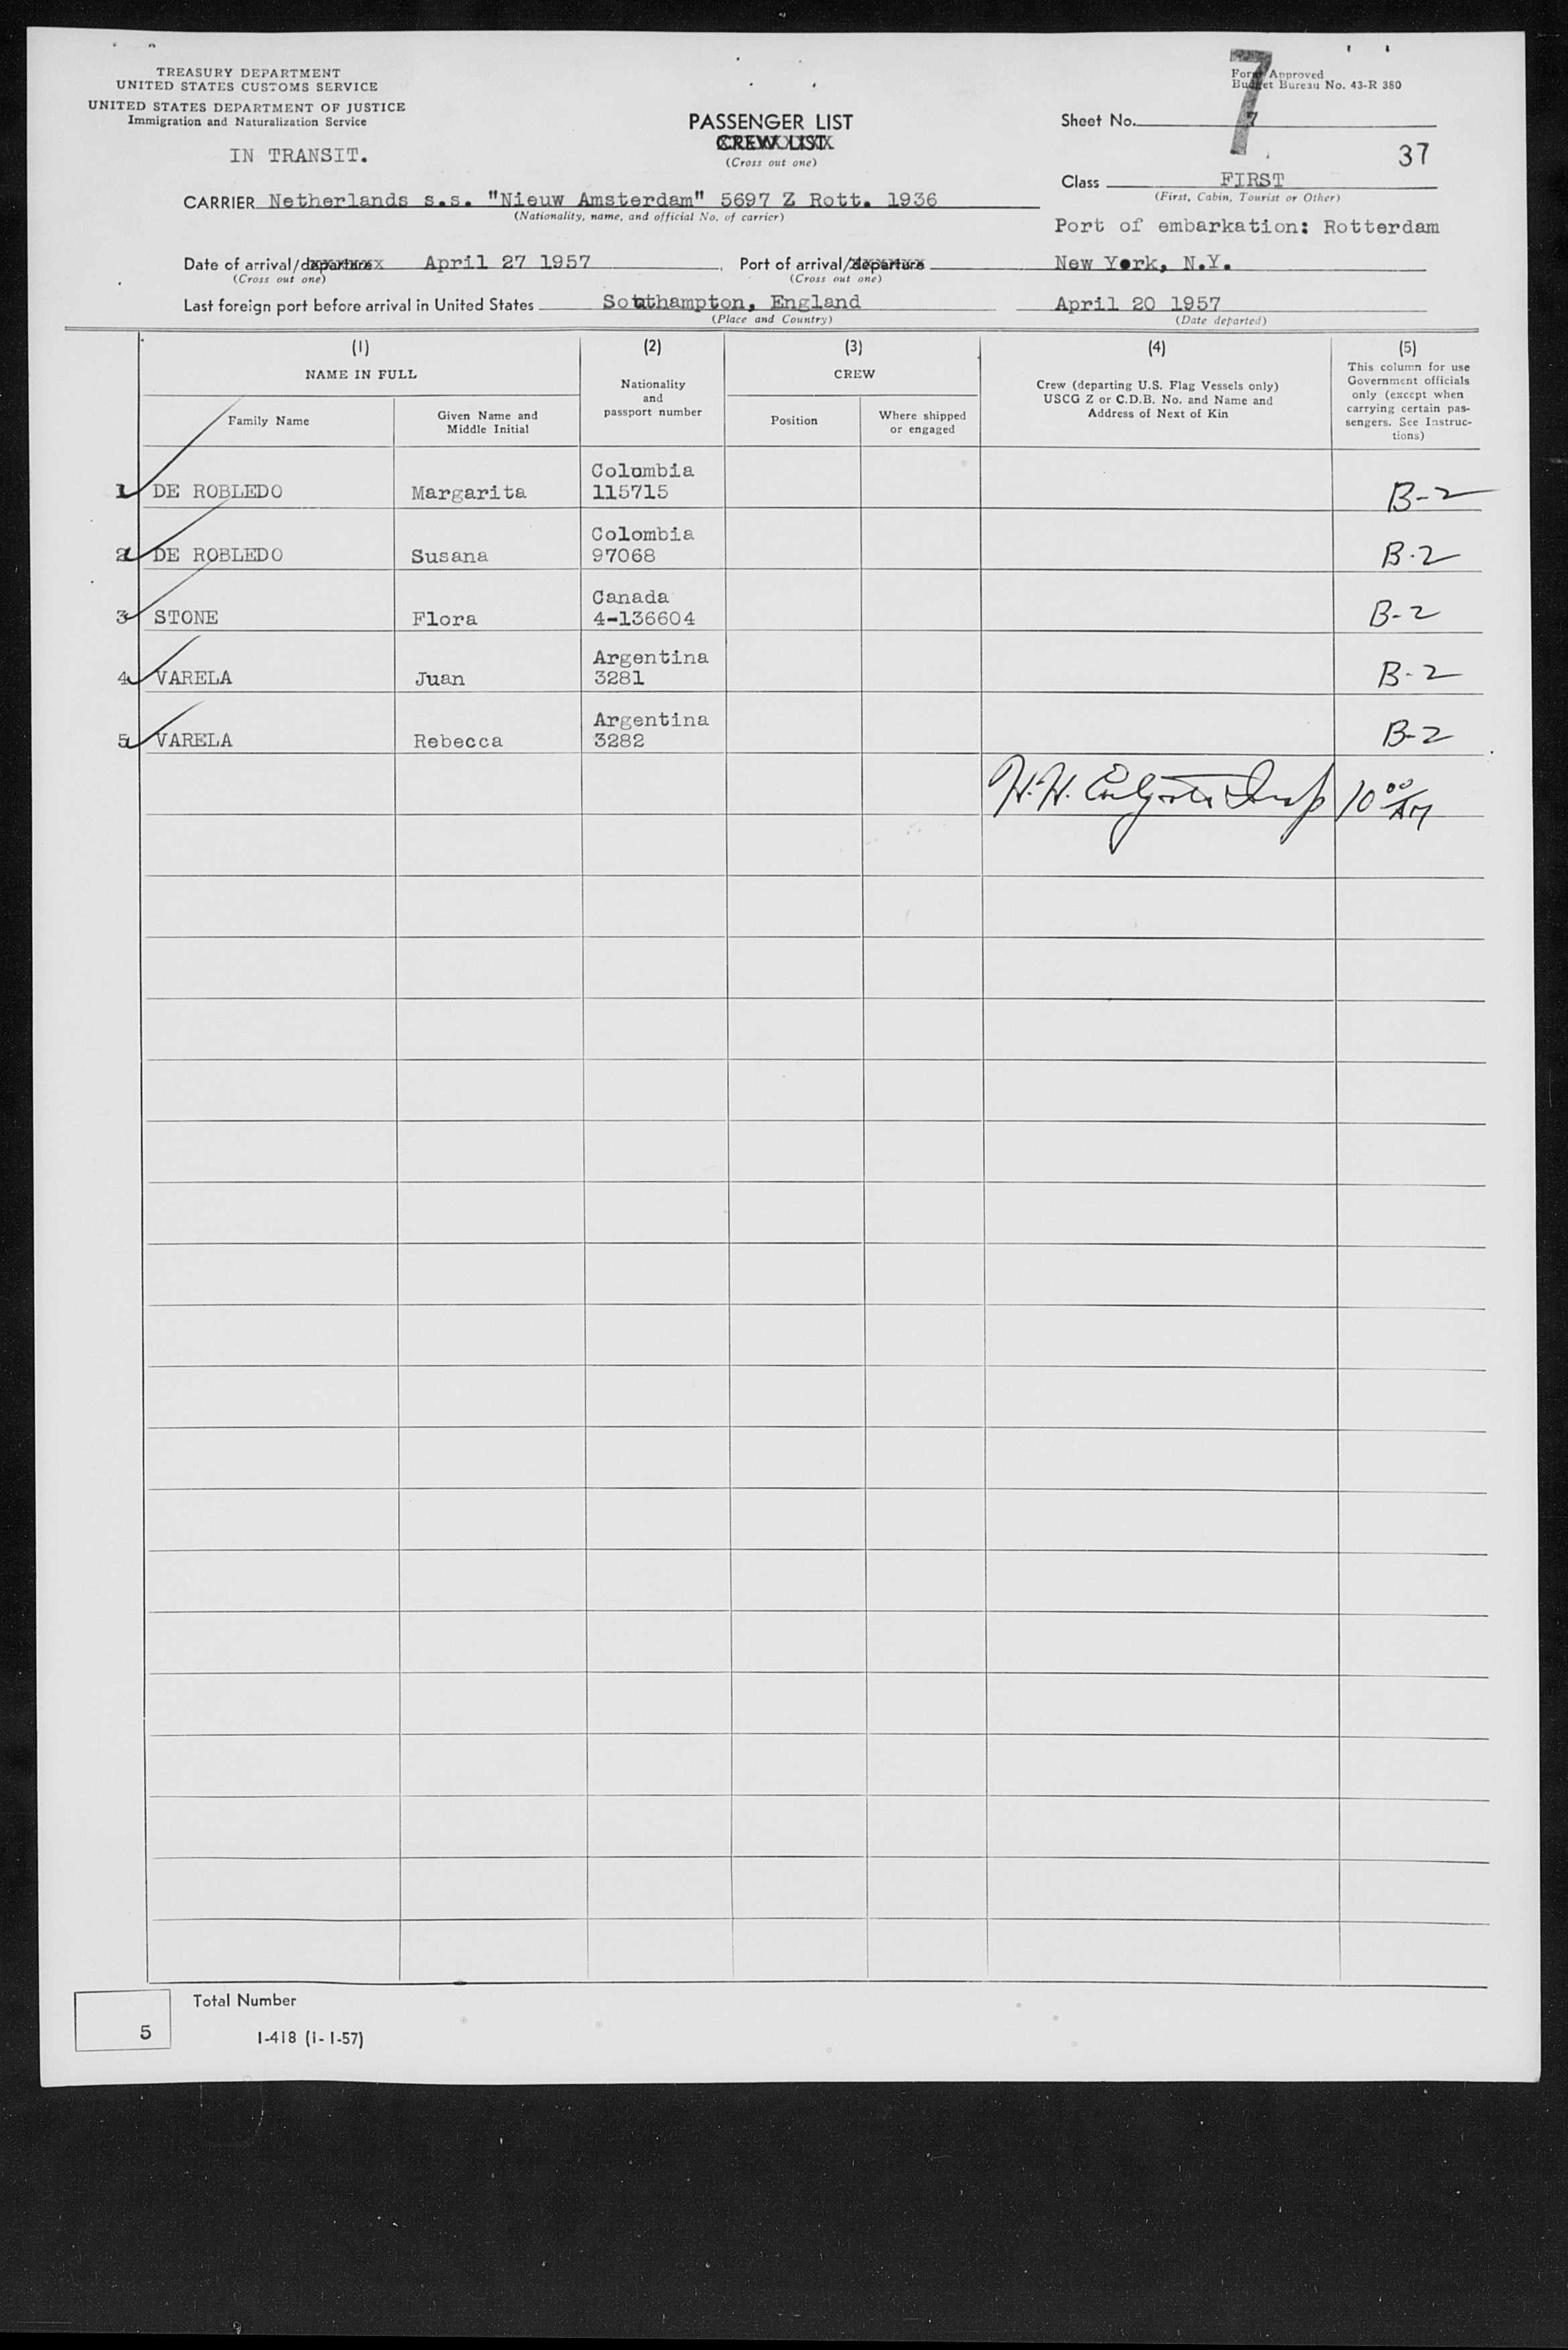 TREASURY DEPARTMENT
UNITED STATES CUSTOMS SERVICE
UNITED STATES DEPARTMENT OF JUSTICE
Immigration and Naturalization Service
IN TRANSIT.
PASSENGER LIST
CREW LIST
(Cross out one)
7
Form Approved
Budget Bureau No. 43-R 380
Sheet No. 7
37
Class FIRST
(First, Cabin, Tourist or Other)
CARRIER Netherlands s.s. "Nieuw Amsterdam" 5697 Z Rott. 1936
(Nationality, name, and official No. of carrier)
Port of embarkation: Rotterdam
Date of arrival/departure April 27 1957, Port of arrival/departure New York, N.Y.
(Cross out one) (Cross out one)
Last foreign port before arrival in United States Southampton, England April 20 1957
(Place and Country) (Date departed)
(1) (2) (3) (4) (5)
NAME IN FULL
Family Name
Given Name and
Middle Initial
Nationality
and
passport number
CREW
Position
Where shipped
or engaged
Crew (departing U.S. Flag Vessels only)
USCG Z or C.D.B. No. and Name and
Address of Next of Kin
This column for use
Government officials
only (except when
carrying certain pas-
sengers. See Instruc-
tions)
Colombia
1 DE ROBLEDO Margarita 115715 B-2
Colombia
2 DE ROBLEDO Susana 97068 B-2
Canada
3 STONE Flora 4-136604 B-2
Argentina
4 VARELA Juan 3281 B-2
Argentina
5 VARELA Rebecca 3282 B-2
10 00 AM
5 Total Number
I-418 (1-1-57)